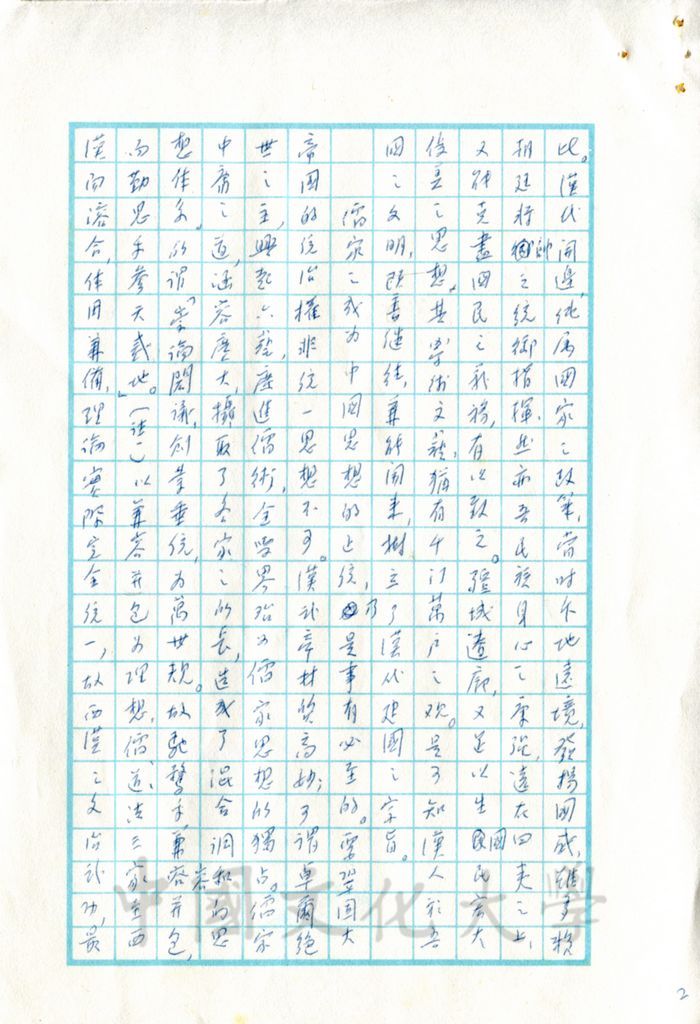 此。漢代開邊,純屬國家之政策,當時斥地遠境,發揚國威,雖多賴
朝廷將帥之統御指揮,然亦吾民族身心之康強,遠在四夷之上,
又能克盡國民之義務,有以致之。疆域遼廓,又足以生國民廣大
俊美之思想。其學術文藝,猶有千门萬戶之观。是可知漢人於吾
國之文明,既善繼往,兼能開來,樹立了漢代建國之宗旨。
儒家之成为中國思想的正統,乃是事有必至的。要鞏固大
帝國的統治權非統一思想不可。漢武帝材質高妙,可謂卓爾絕
世之主,興起六藝,廣進儒術,全學界殆为儒家思想的獨占。儒家
中庸之道,涵容龐大,攝取了各家之所長,造成了混合調和的思
想体系。所謂「崇論閎議,創業垂統,为萬世規。故馳騖乎兼容并包,
而勤思乎參天貳地。」(註一)以兼容并包为理想,儒、道、法三家至西
漢而溶合,体用兼備,理論實際完全統一,故西漢之文治武功,最
2
中國文化大學